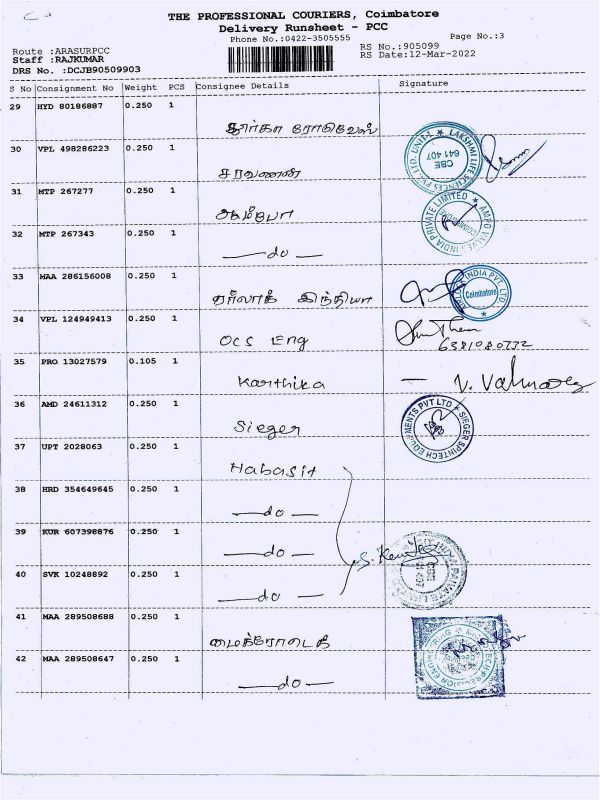 THE PROFESSIONAL COURIERS, Coimbatore
Delivery Runsheet - PCC
Phone No.:0422-3505555
Page No.:3
Route :ARASURPCC
RS No.:905099
Staff :RAJKUMAR
RS Date:12-Mar-2022
DRS No. :DCJB90509903
S No Consignment No Weight PCS Consignee Details Signature
29 HYD 80186887 0.250 1
30 VPL 498286223 0.250 1
சரவணன்
LAKSHMI LIFE SCIENCES PVT. LTD. UNIT-
CBE
641 407
31 MTP 267277 0.250 1
32 MTP 267343 0.250 1
do
33 MAA 286156008 0.250 1
இந்தியா
INDIA PVT. LTD.
Coimbatore
34 VPL 124949413 0.250 1
OCS Eng
35 PRO 13027579 0.105 1
Karthika
36 AMD 24611312 0.250 1
Sieger
SIEGER SPINTECH EQUIPMENTS PVT LTD
37 UPT 2028063 0.250 1
Habasit
38 HRD 354649645 0.250 1
do
39 KUR 607398876 0.250 1
do
40 SVK 10248892 0.250 1
do
41 MAA 289508688 0.250 1
42 MAA 289508647 0.250 1
do